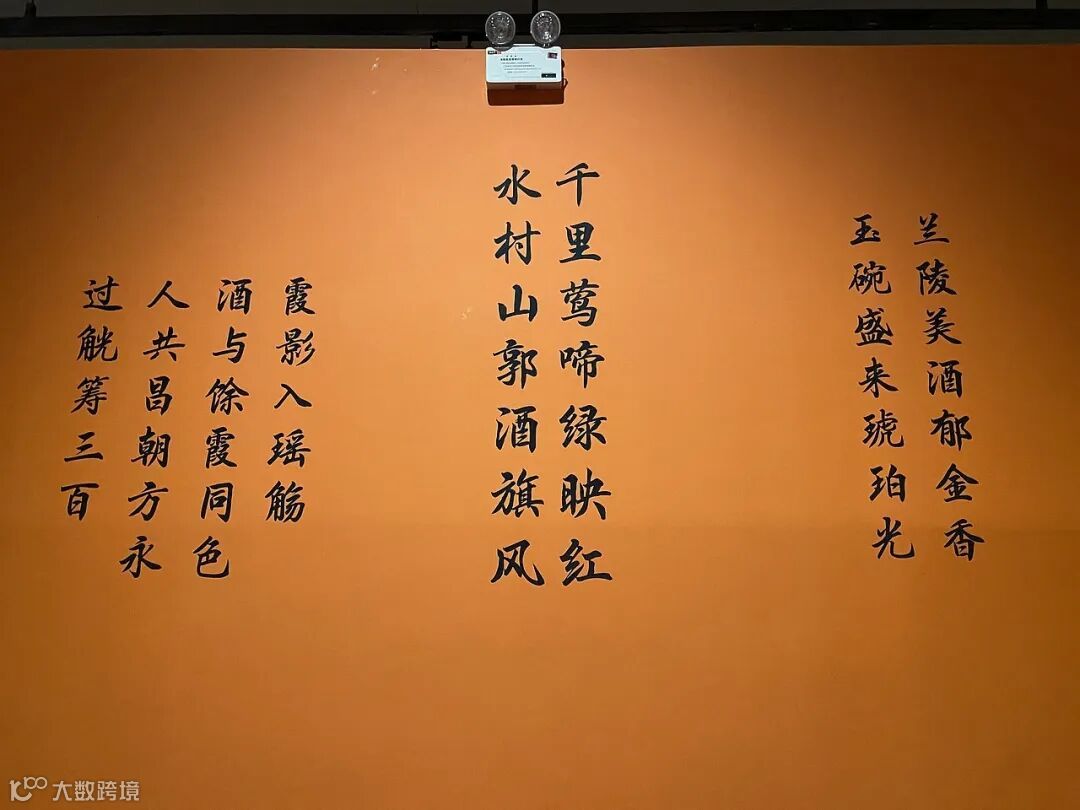 兰陵美酒郁金香
玉碗盛来琥珀光
千里莺啼绿映红
水村山郭酒旗风
霞影入瑶觞
酒与馀霞同色
人共昌朝方永
过觥筹三百
大数跨境